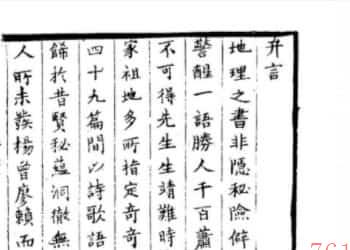 弁言
地理之書非隱秘險僻
警醒一語勝人千百蕭
不可得先生生靖難時
家祖地多所指定奇奇
四十九篇間以詩歌語
歸於昔賢秘蘊洞徹無
人所未發楊曾廖賴而
761